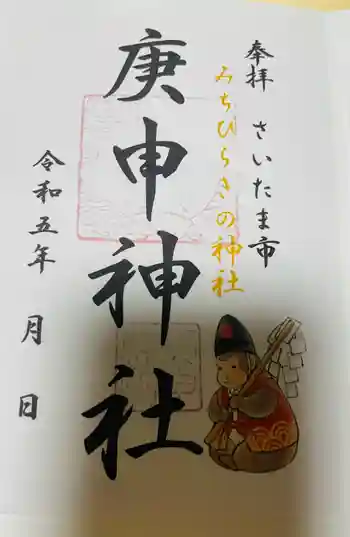 奉拝 さいたま市
みちびらきの神社
庚申神社
令和五年 月 日